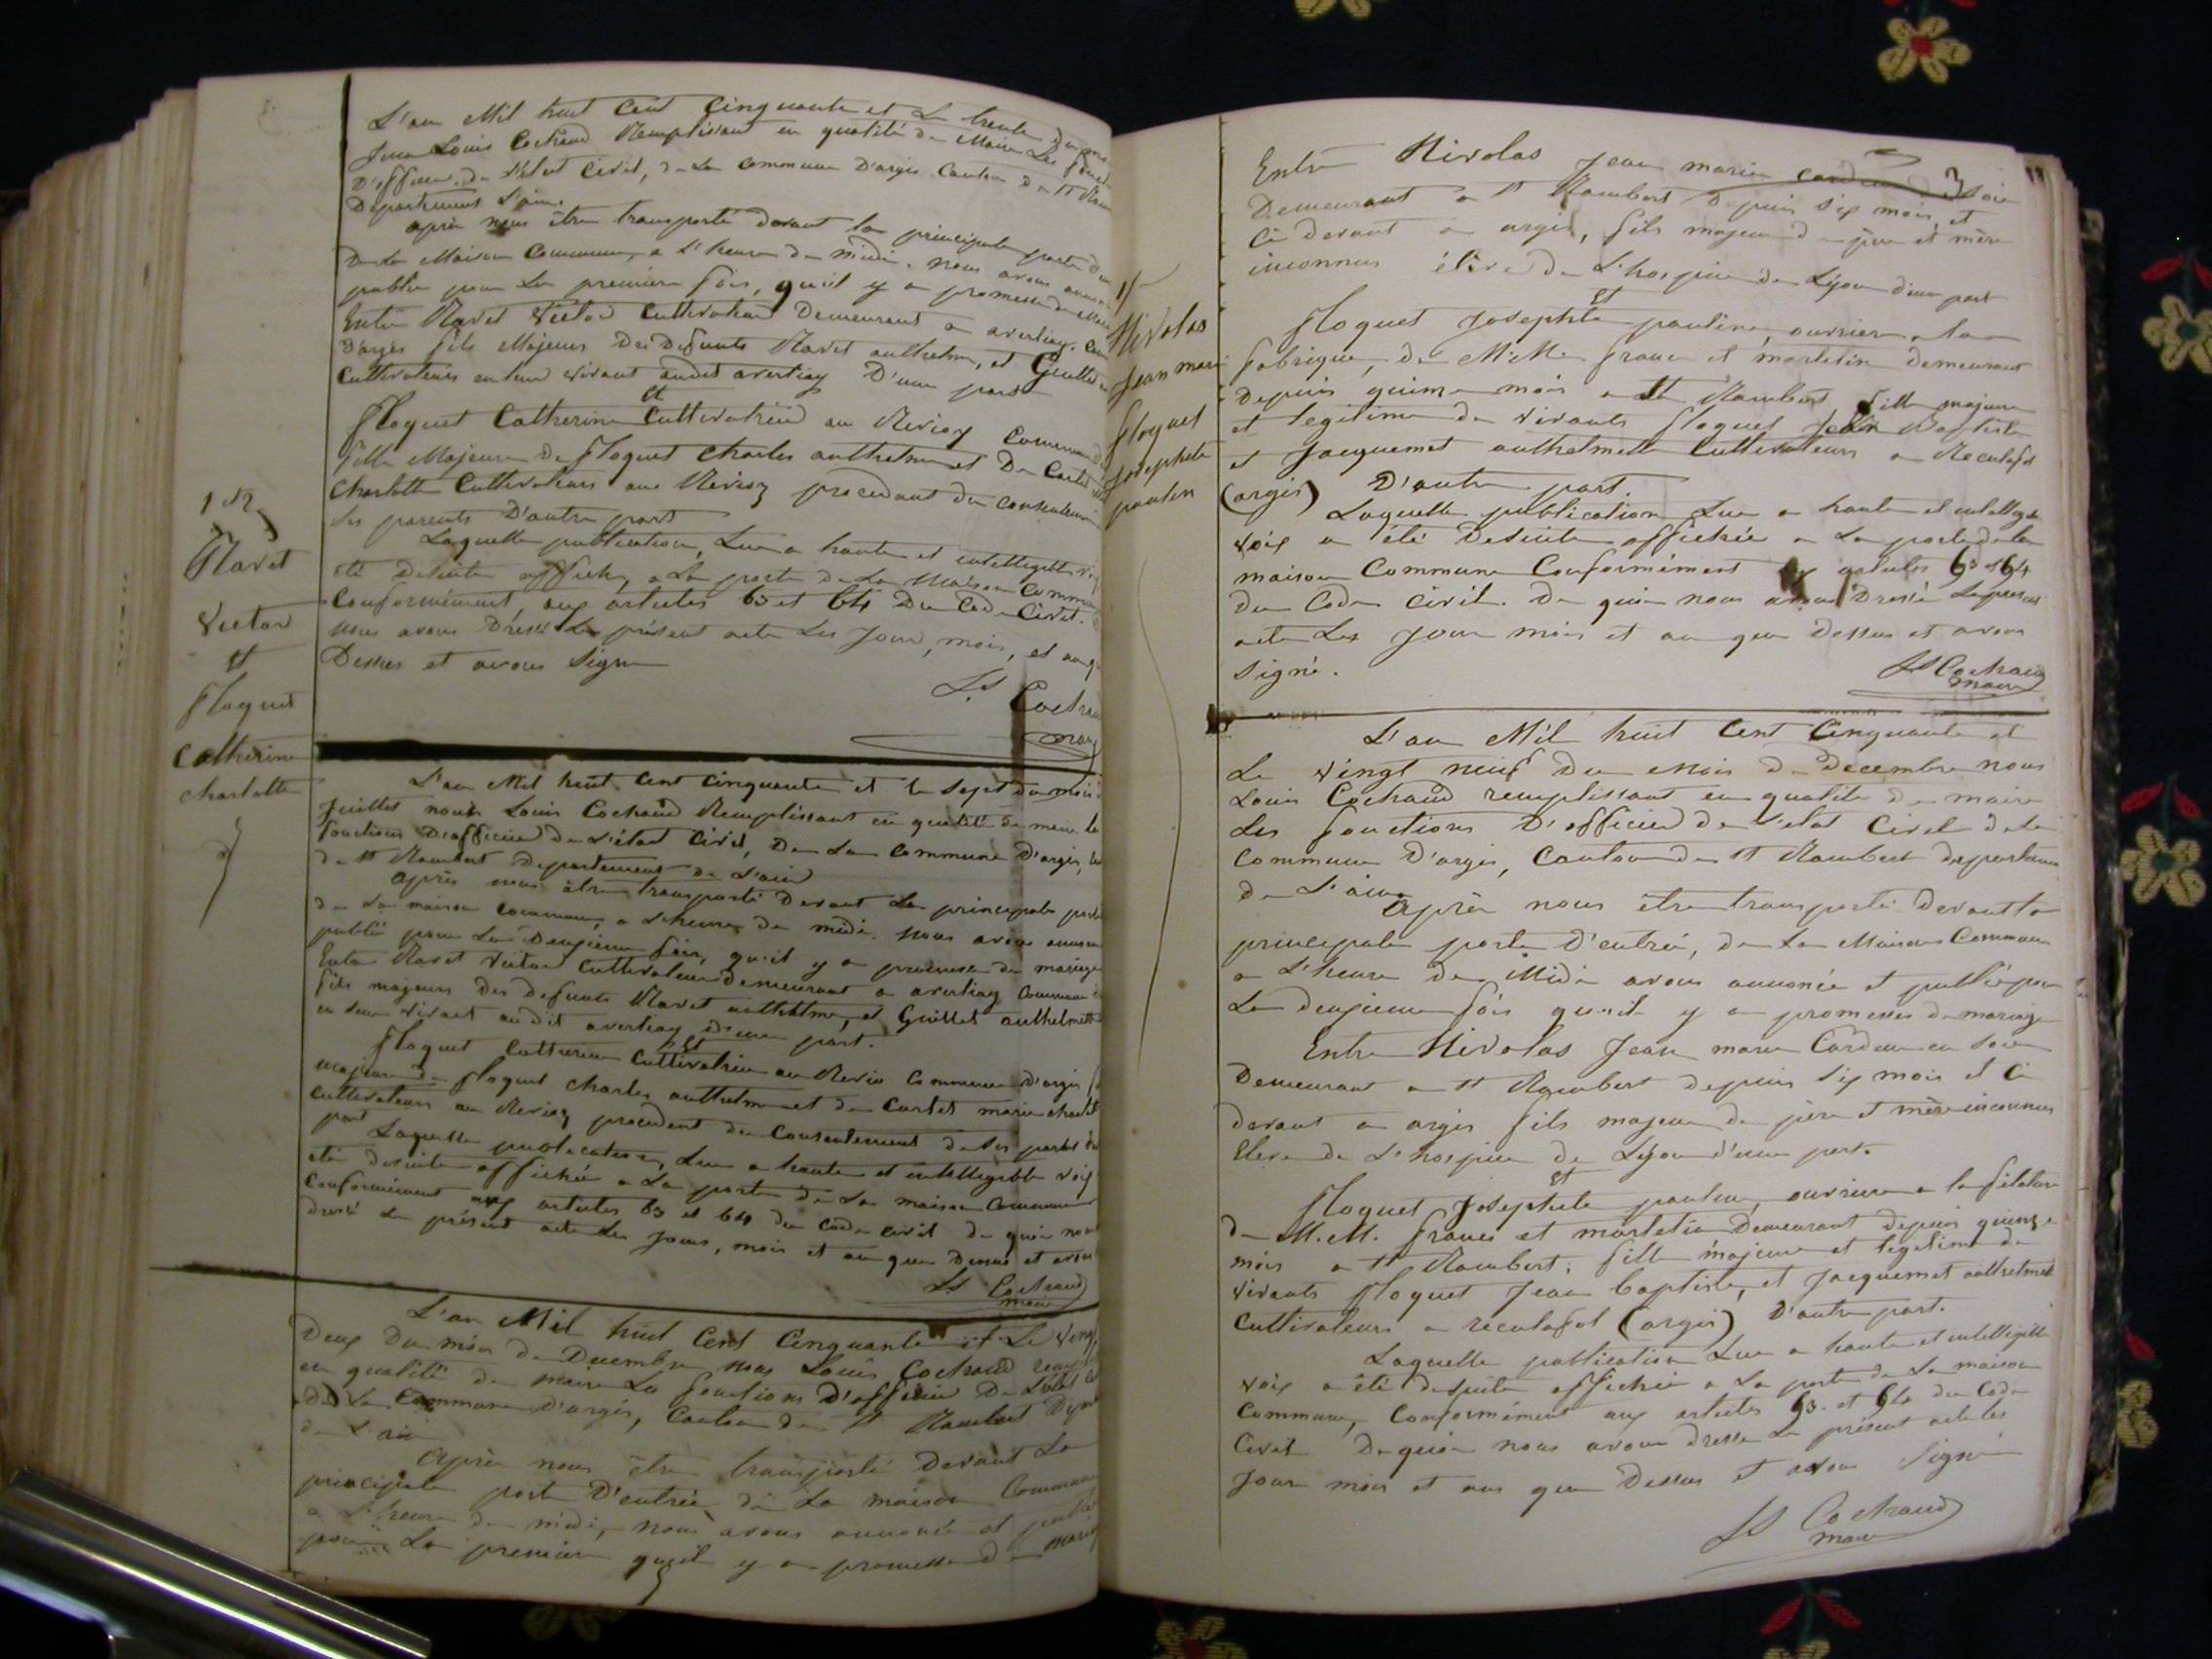 L'an Mil huit Cent Cinquante et Le trente du
Louis Cochaud Remplissant en qualité de Maire Les
D'officier de l'état Civil, de La Commune D'argis Canton de St Ram
Département L'ain.
après nous être transporté devant la principale porte
De La Maison Commune, a l'heure de midi. nous avons
publié pour La première fois, qu'il y a promesse de
Entre Ravet Victor Cultivateur Demeurant a averliaz.
D'argis fils Majeur Des Defunts Ravet anthelme, et Guillet
Cultivateurs en leur vivant audit averliaz D'une part
Et
Floquet Catherine Cultivatrice au Revioz Commune
fille Majeure de Floquet Charles anthelme et De Cartet
Charlotte Cultivateurs au Revioz procedant du consentement
des parents D'autre part
Laquelle publication, Lue a haute et intelligible
été Desuite affichée, a La porte de La Maison Commune
Conformément, aux articles 63 et 64 Du Code Civil.
nous avons Dressé Le présent acte Les Jour, mois, et an q
Dessus et avons Signé
Ls Cochaud
maire
1 et 2
Ravet
Victor
et
Floquet
Catherine
Charlotte
L'an Mil huit Cent Cinquante et le Sept du mois
Juillet nous Louis Cochaud Remplissant en qualité de maire les
fonctions D'officier de L'état Civil, De La Commune D'argis,
de St Rambert Departement de L'ain
Après nous être transporté Devant La principale porte
de La maison commune, a L'heure de midi. nous avons
publié pour La Deuxième fois, qu'il y a promesse de mariage
Entre Ravet Victor Cultivateur Demeurant a averliaz Commune
fils majeur des defunts Ravet anthelme, et Guillet anthelmette
en leur vivant audit averliaz d'une part.
Et
Floquet Catherine Cultivatrice au Revioz Commune D'argis
majeure de Floquet Charles anthelme et de Cartet marie charlotte
Cultivateurs au Revioz procedent du Consentement de Ses parents
part
Laquelle publication, Lue a haute et intelligible voix
été desuite affichée a La porte de La maison Commune
Conformément aux articles 63 et 64 du Code civil de quoi nous
dressé Le présent acte Les Jour, mois et an que Dessus et avons
Ls Cochaud
maire
L'an Mil huit Cent Cinquante et Le Vingt
Deux du mois de Decembre nous Louis Cochaud
en qualité de maire Les fonctions D'officier De L'état
De La Commune D'argis, Canton de St Rambert
de L'ain
Après nous être transporté Devant La
principale porte D'entrée de La maison Commune
a L'heure de midi, nous avons annoncé et publié
pour La première qu'il y a promesse de mariage
Entre Nivolas Jean marie cardeur de Soie
Demeurant a St Rambert Depuis Six mois, et
Ci devant a argis, fils majeur de père et mère
inconnus élève de L'hospice de Lyon d'une part
Et
Floquet Josephte pauline, ouvriere a la
fabrique, de M.M. franc et martelin demeurant
Depuis quinze mois a St Rambert fille majeure
et legitime de vivants Floquet Jean Baptiste
et Jacquemet anthelmette Cultivateurs a Reculafol
(argis) D'autre part.
Laquelle publication Lue a haute et intelligible
voix a été Desuite affichée a La porte de la
maison Commune Conformément aux articles 63 et 64
du Code civil. De quoi nous avons Dressé Le present
acte Les Jour mois et an que Dessus et avons
Signé.
Ls Cochaud
maire
Nivolas
Jean marie
Floquet
Josephte
paulin
L'an Mil huit Cent Cinquante et
Le vingt neuf Du Mois de Decembre nous
Louis Cochaud remplissant en qualité de maire
Les fonctions D'officier de L'etat Civil de la
Commune D'argis, Canton de St Rambert departement
de L'ain
Après nous être transporté Devant la
principale porte D'entrée, de La Maison Commune
a L'heure De Midi avons annoncé et publié pour
La deuxieme fois qu'il y a promesses de mariage
Entre Nivolas Jean marie Cardeur en Soie
Demeurant a St Rambert depuis Six mois et Ci
devant a argis fils majeur de père et mère inconnus
Eleve de L'hospice De Lyon d'une part.
Et
Floquet Josephte pauline, ouvriere a la filature
de M.M. franc et martelin Demeurant depuis quinze
mois a St Rambert; fille majeure et legitime de
vivants Floquet Jean baptiste, et Jacquemet anthelmette
Cultivateurs a reculafol (argis) D'autre part.
Laquelle publication Lue a haute et intelligible
voix a été desuite affichée a La porte de La maison
Commune, Conformément aux articles 63. et 64 du Code
Civil De quoi nous avons dressé Le présent acte les
Jour mois et ans que Dessus et avons Signé
Ls Cochaud
maire